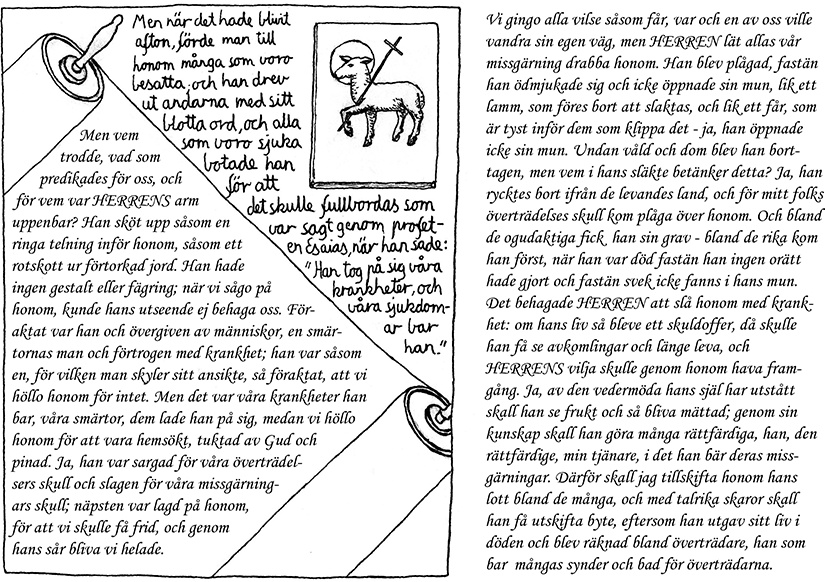 Men när det hade blivit
afton, förde man till
honom många som voro
besatta; och han drev
ut andarna med sitt
blotta ord, och alla
som voro sjuka
botade han
för att
det skulle fullbordas som
var sagt genom profet-
en Esaias, när han sade:
"Han tog på sig våra
krankheter, och
våra sjukdom-
ar bar
han."
Men vem
trodde, vad som
predikades för oss, och
för vem var HERRENS arm
uppenbar? Han sköt upp såsom en
ringa telning inför honom, såsom ett
rotskott ur förtorkad jord. Han hade
ingen gestalt eller fägring; när vi sågo på
honom, kunde hans utseende ej behaga oss. För-
aktat var han och övergiven av människor, en smär-
tornas man och förtrogen med krankhet; han var såsom
en, för vilken man skyler sitt ansikte, så föraktat, att vi
höllo honom för intet. Men det var våra krankheter han
bar, våra smärtor, dem lade han på sig, medan vi höllo
honom för att vara hemsökt, tuktad av Gud och
pinad. Ja, han var sargad för våra överträdel-
sers skull och slagen för våra missgärning-
ars skull; näpsten var lagd på honom,
för att vi skulle få frid, och genom
hans sår bliva vi helade.
Vi gingo alla vilse såsom får, var och en av oss ville
vandra sin egen väg, men HERREN lät allas vår
missgärning drabba honom. Han blev plågad, fastän
han ödmjukade sig och icke öppnade sin mun, lik ett
lamm, som föres bort att slaktas, och lik ett får, som
är tyst inför dem som klippa det - ja, han öppnade
icke sin mun. Undan våld och dom blev han bort-
tagen, men vem i hans släkte betänker detta? Ja, han
rycktes bort ifrån de levandes land, och för mitt folks
överträdelses skull kom plåga över honom. Och bland
de ogudaktiga fick han sin grav - bland de rika kom
han först, när han var död fastän han ingen orätt
hade gjort och fastän svek icke fanns i hans mun.
Det behagade HERREN att slå honom med krank-
het: om hans liv så bleve ett skuldoffer, då skulle
han få se avkomlingar och länge leva, och
HERRENS vilja skulle genom honom hava fram-
gång. Ja, av den vedermöda hans själ har utstått
skall han se frukt och så bliva mättad; genom sin
kunskap skall han göra många rättfärdiga, han, den
rättfärdige, min tjänare, i det han bär deras miss-
gärningar. Därför skall jag tillskifta honom hans
lott bland de många, och med talrika skaror skall
han få utskifta byte, eftersom han utgav sitt liv i
döden och blev räknad bland överträdare, han som
bar mångas synder och bad för överträdarna.